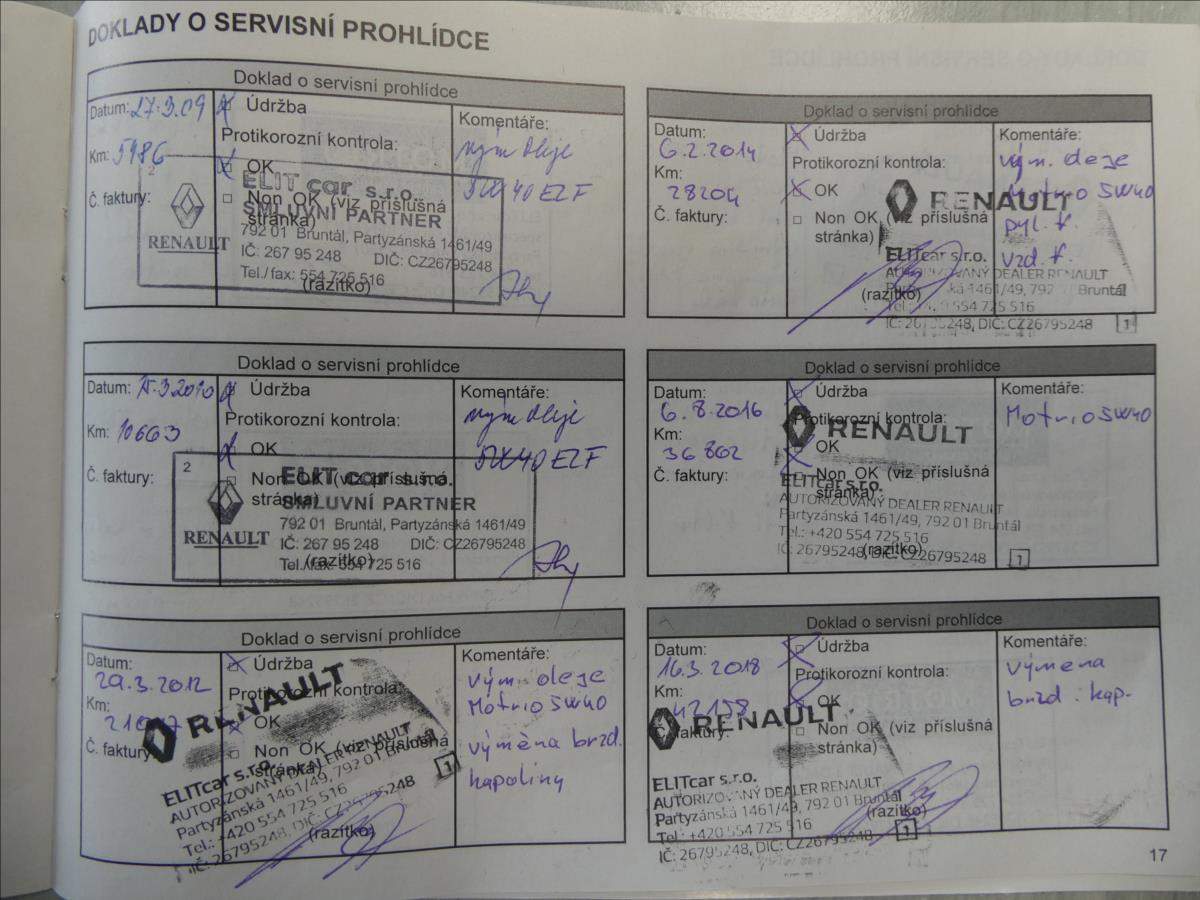 DOKLADY O SERVISNÍ PROHLÍDCE
Doklad o servisní prohlídce
Datum: 27.3.09
Km: 5986
Č. faktury:
Údržba
Protikorozní kontrola:
OK
Non OK (viz příslušná
stránka)
(razítko)
Komentáře:
výměn Oleje
5W40 ELF
2
RENAULT
ELIT car s.r.o.
SMLUVNÍ PARTNER
792 01 Bruntál, Partyzánská 1461/49
IČ: 267 95 248 DIČ: CZ26795248
Tel./fax: 554 725 516
Doklad o servisní prohlídce
Datum: 6.2.2014
Km: 28204
Č. faktury:
Údržba
Protikorozní kontrola:
OK
Non OK (viz příslušná
stránka)
(razítko)
Komentáře:
vým. oleje
Motrio 5W40
pyl. f.
vzd. f.
RENAULT
ELITcar s.r.o.
AUTORIZOVANÝ DEALER RENAULT
Partyzánská 1461/49, 792 01 Bruntál
Tel.: +420 554 725 516
IČ: 26795248, DIČ: CZ26795248
1
Doklad o servisní prohlídce
Datum: 3.2010
Km: 10663
Č. faktury:
Údržba
Protikorozní kontrola:
OK
Non OK (viz příslušná
stránka)
(razítko)
Komentáře:
výměn Oleje
5W40 ELF
2
RENAULT
ELIT car s.r.o.
SMLUVNÍ PARTNER
792 01 Bruntál, Partyzánská 1461/49
IČ: 267 95 248 DIČ: CZ26795248
Tel./fax: 554 725 516
Doklad o servisní prohlídce
Datum: 6.8.2016
Km: 36862
Č. faktury:
Údržba
Protikorozní kontrola:
OK
Non OK (viz příslušná
stránka)
(razítko)
Komentáře:
Motrio 5W40
RENAULT
ELITcar s.r.o.
AUTORIZOVANÝ DEALER RENAULT
Partyzánská 1461/49, 792 01 Bruntál
Tel.: +420 554 725 516
IČ: 26795248, DIČ: CZ26795248
1
Doklad o servisní prohlídce
Datum: 29.3.2012
Km:
Č. faktury:
Údržba
Protikorozní kontrola:
OK
Non OK (viz příslušná
stránka)
(razítko)
Komentáře:
vým. oleje
Motrio 5W40
výměna brzd.
kapaliny
RENAULT
ELITcar s.r.o.
AUTORIZOVANÝ DEALER RENAULT
Partyzánská 1461/49, 792 01 Bruntál
Tel.: +420 554 725 516
IČ: 26795248, DIČ: CZ26795248
1
Doklad o servisní prohlídce
Datum: 16.3.2018
Km: 42158
Č. faktury:
Údržba
Protikorozní kontrola:
OK
Non OK (viz příslušná
stránka)
(razítko)
Komentáře:
výměna
brzd. kap.
RENAULT
ELITcar s.r.o.
AUTORIZOVANÝ DEALER RENAULT
Partyzánská 1461/49, 792 01 Bruntál
Tel.: +420 554 725 516
IČ: 26795248, DIČ: CZ26795248
1
17